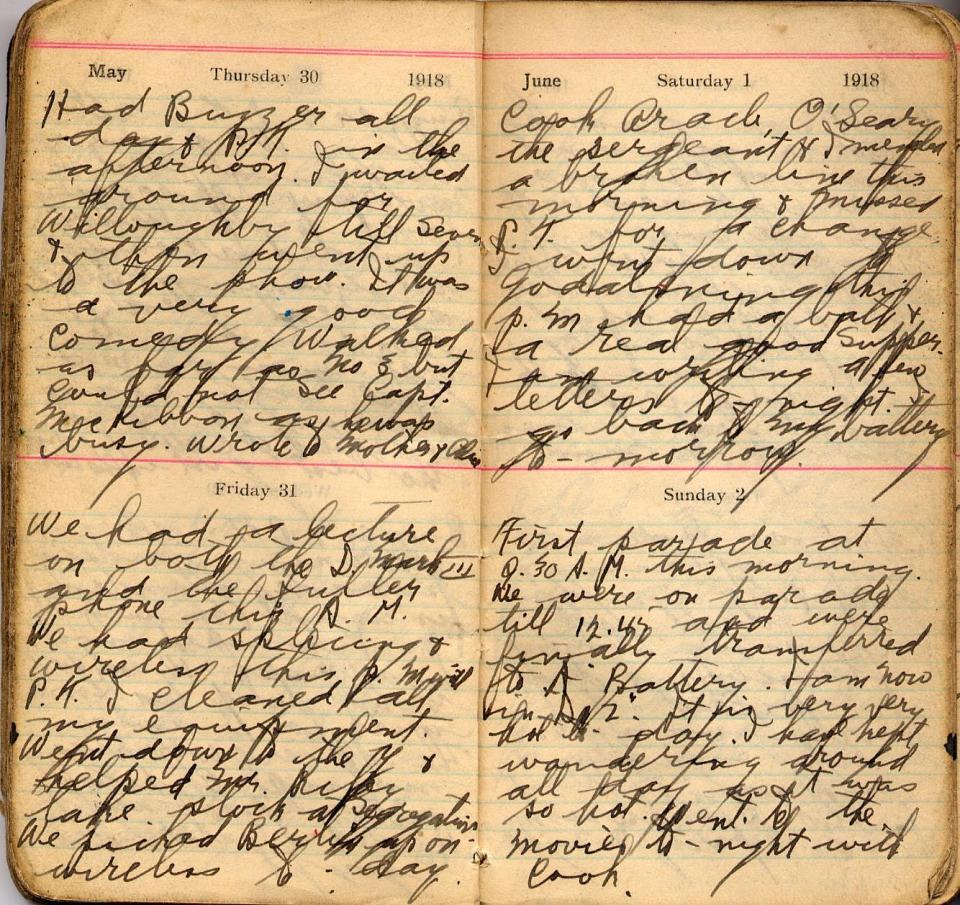 May Thursday 30 1918
Had Buzzer all
day & P.T. in the
afternoon. I waited
around for
Willoughby till seven
& then went up
to the show. It was
a very good
Comedy. Walked
as far as No 3 but
could not see Capt.
as he was
busy. Wrote to Mother &
Friday 31
We had a lecture
on both the D Mark III
and the Fuller
phone this A. M.
We had splicing &
wireless this P. M.
P. T. I cleaned all
my equipment.
Went down to the Y &
helped Mr.
take stock at Segregation
We picked Berlin up on
wireless to-day.
June Saturday 1 1918
Cook, O'Leary
the sergeant & I mended
a broken line this
morning & missed
P. T. for a change
I went down to
Godalming this
p. m. had a bath &
a real good supper.
I am writing a few
letters to-night. I
go back to my battery
to-morrow.
Sunday 2
First parade at
8.30 A. M. this morning.
We were on parade
till 12.45 and were
finally transferred
to A Battery. I am now
in It is very very
hot to-day. I have kept
wandering around
all day as it was
so hot. Went to the
movies to-night with
Cook.